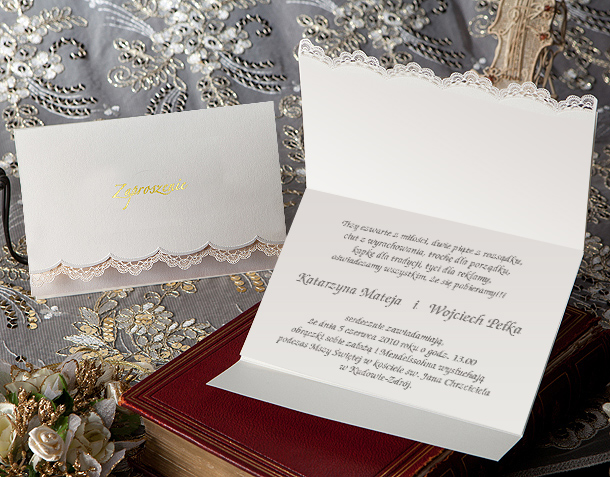 Zaproszenie
Trzy czwarte z miłości, dwie piąte z rozsądku,
ciut z wyrachowania, trochę dla porządku,
kapkę dla tradycji, tyci dla reklamy,
oświadczamy wszystkim, że się pobieramy!!!
Katarzyna Mateja i Wojciech Pełka
serdecznie zawiadamiają,
że dnia 5 czerwca 2010 roku o godz. 13.00
obrączki sobie założą i Mendelssohna wysłuchają
podczas Mszy Świętej w kościele św. Jana Chrzciciela
w Kudowie-Zdrój.